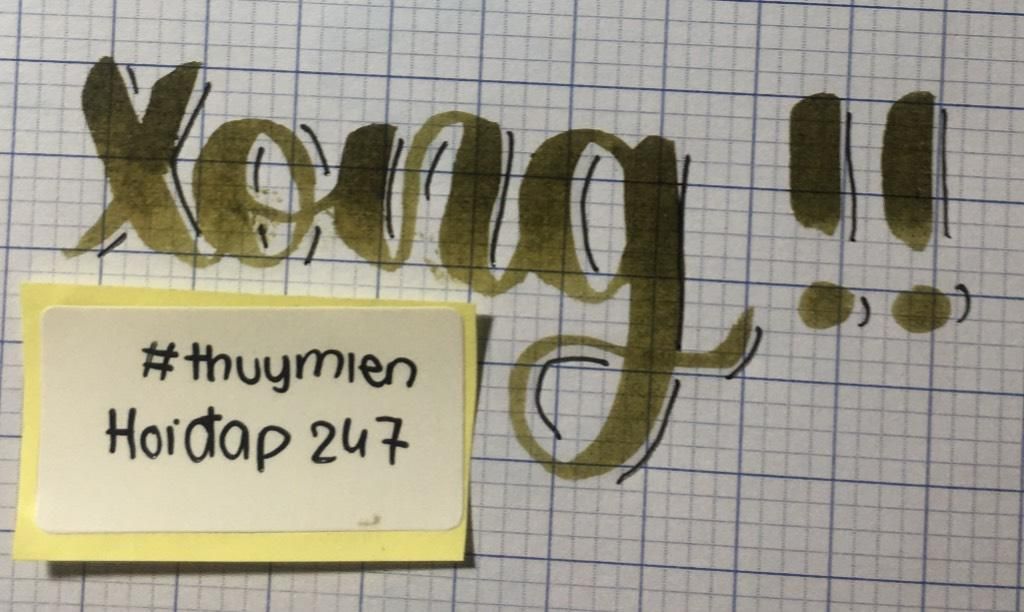 Xong !!
#thuymien
Hoiđap 247